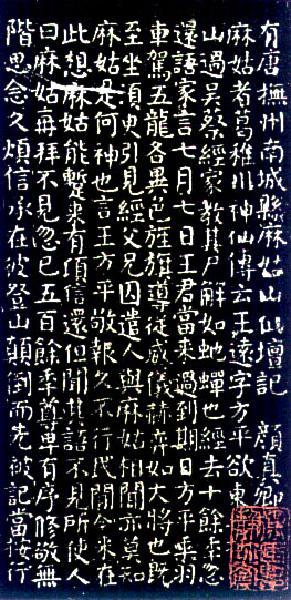 有唐撫州南城縣麻姑山仙壇記 顏真卿
麻姑者葛稚川神仙傳云王遠字方平欲東
山過吳蔡經家教其尸解如虵蟬也經去十餘年忽
還語家言七月七日王君當來過到期日方平乘羽
車駕五龍各異色旌旗導從威儀赫弈如大將也既
至坐須臾引見經父兄因遣人與麻姑相聞亦莫知
麻姑是何神也言王方平敬報久不行民間今來在
此想麻姑能暫來有頃信還但聞其語不見所使人
曰麻姑再拜不見忽已五百餘年尊卑有序修敬無
階思念久煩信承在彼登山顛倒而先被記當按行